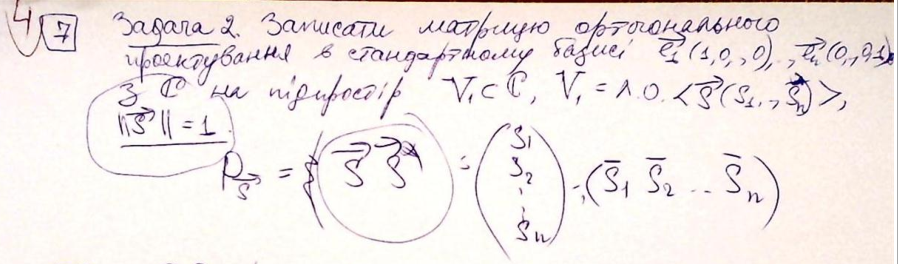 4 7 Задача 2. Записати матрицю ортогонального
проектування в стандартному базисі e⃗₁(1,0,..,0),.., e⃗ₙ(0,..,0,1)
з ℂ на підпростір V₁⊂ℂ, V₁ = л.о.<s⃗(s₁,..,sₙ)>,
||s⃗|| = 1.
P_s⃗ = { s⃗ s⃗* = (s₁ s₂ ⋮ sₙ) · (s̄₁ s̄₂ ... s̄ₙ)